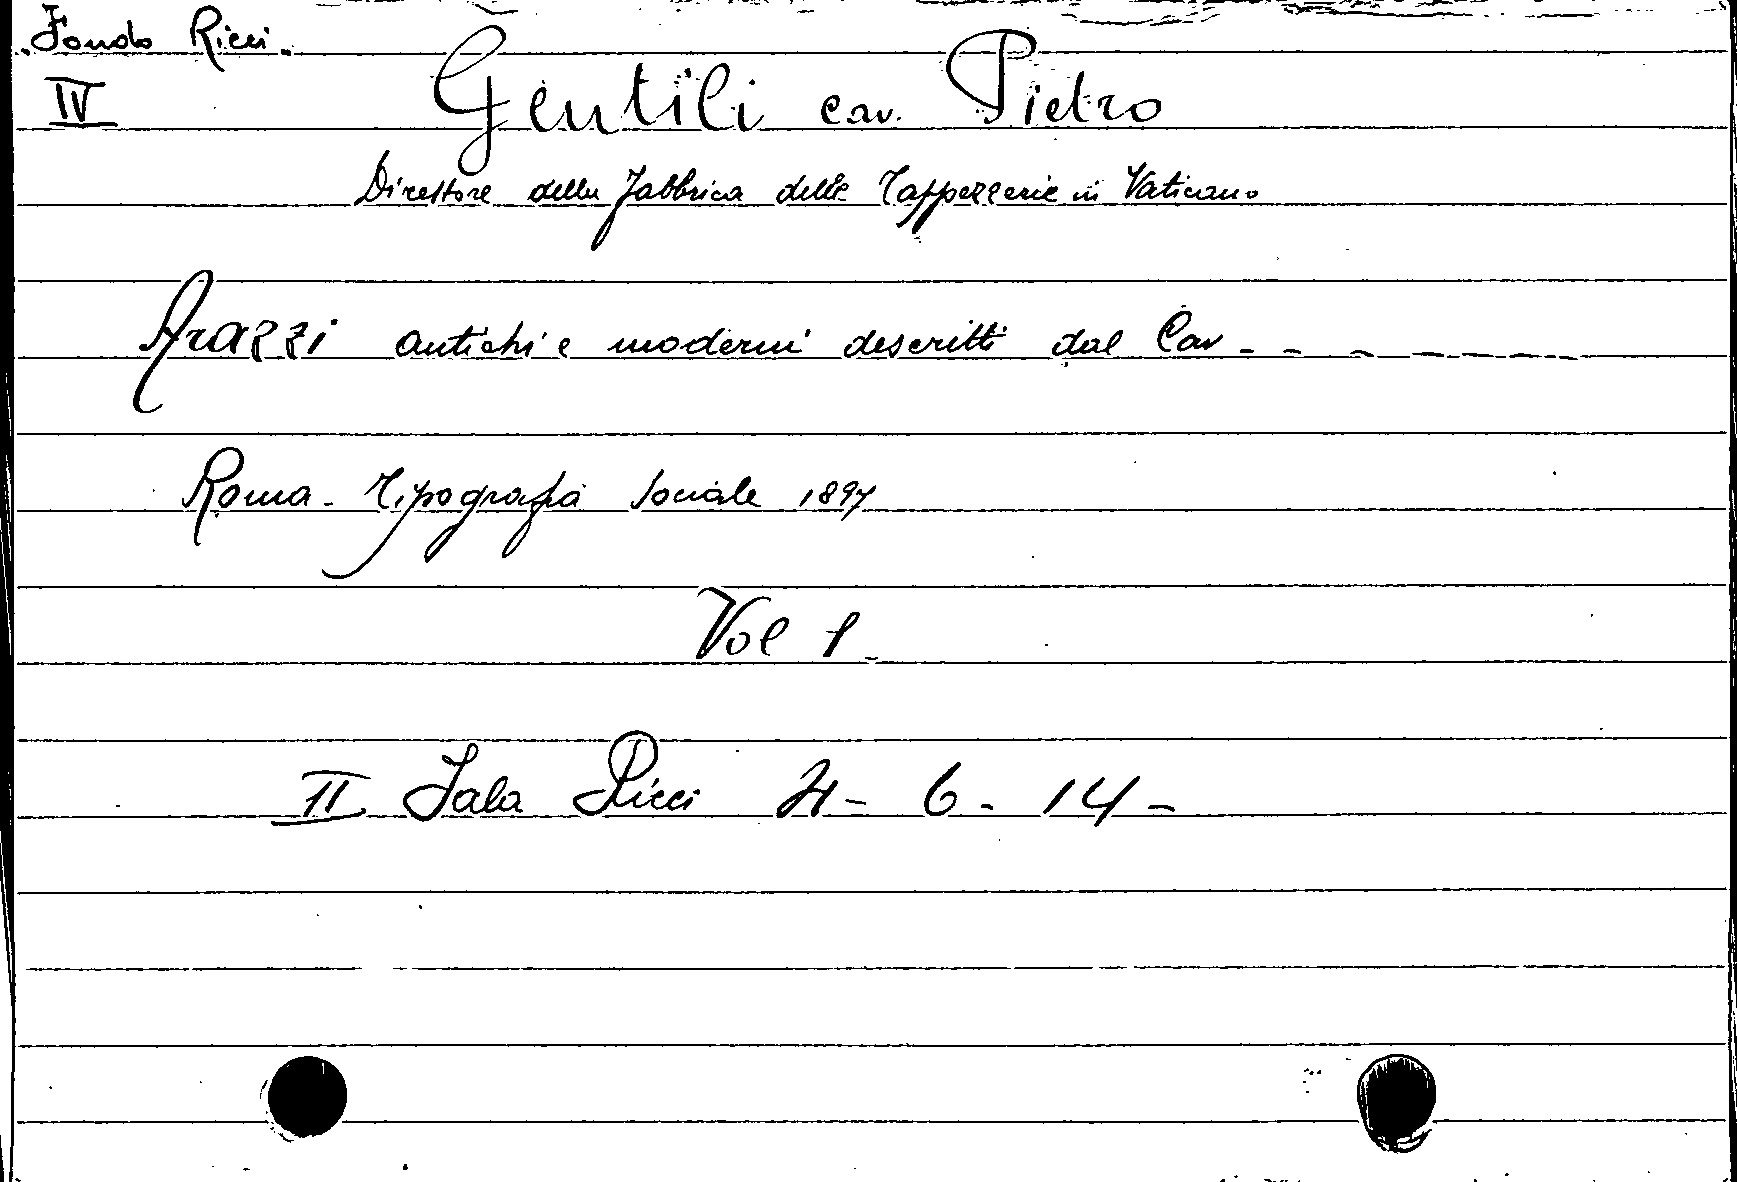 Fondo Ricci.
IV
Gentili cav. Pietro
Direttore della Fabbrica delle Tappezzerie in Vaticano
Arazzi antichi e moderni descritti dal Cav - - - - - - - -
Roma - Tipografia Sociale 1897
Vol 1.
II Sala Ricci 21 - 6 - 14 -